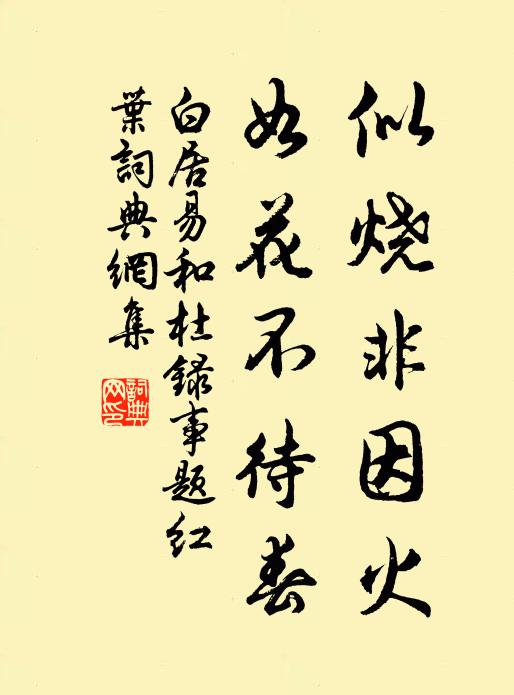 似烧非因火
如花不待春
白居易和杜録事題红
葉詞典網集
詞典
网印